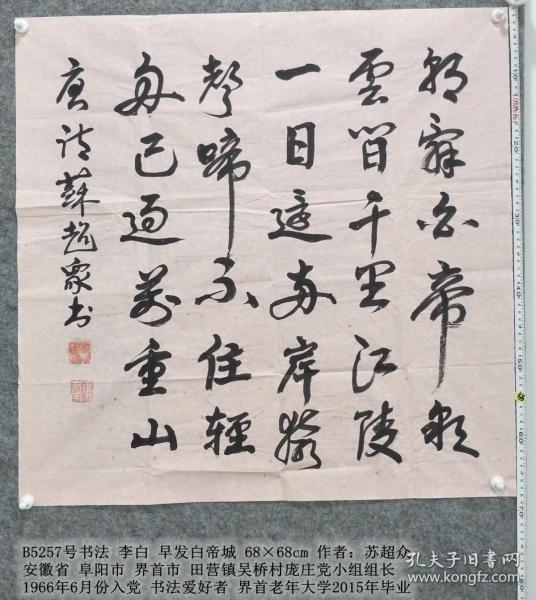 朝辭白帝彩
雲間千里江陵
一日還两岸猿
聲啼不住輕
舟已過萬重山
唐诗蘇超衆书
B5257号书法 李白 早发白帝城 68×68cm 作者：苏超众
安徽省 阜阳市 界首市 田营镇吴桥村庞庄党小组组长
1966年6月份入党 书法爱好者 界首老年大学2015年毕业
孔夫子旧书网